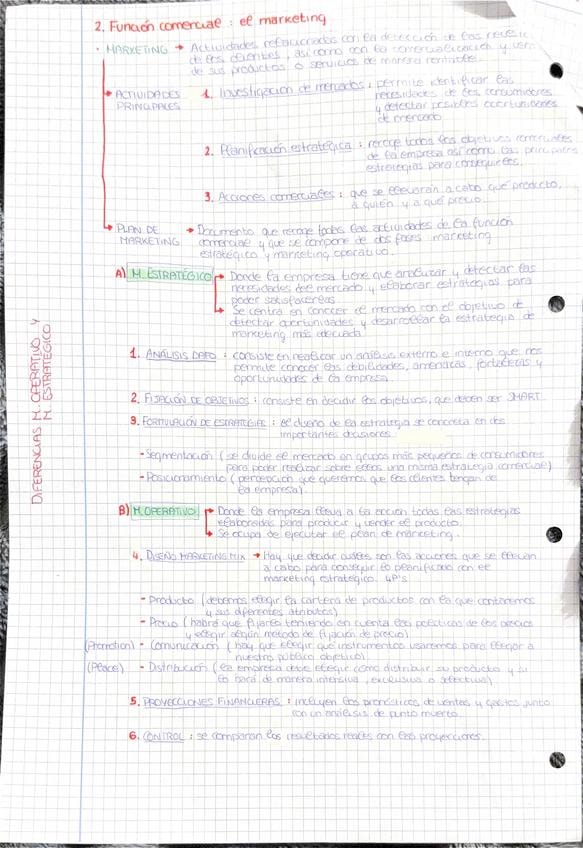 2. Función comercial : el marketing
· MARKETING → Actividades relacionadas con la detección de las
de los clientes, así como con la comercialización y
de sus productos o servicios de manera rentable.
ACTIVIDADES PRINCIPALES
1. Investigación de mercados : permite identificar las
necesidades de los consumidores
y detectar posibles oportunidades
de mercado
2. Planificación estratégica : recoge todos los objetivos comerciales
de la empresa así como las principales
estrategias para conseguirlos.
3. Acciones comerciales : que se llevarán a cabo qué producto,
a quién y a qué precio.
PLAN DE MARKETING → Documento que recoge todas las actividades de la función
comercial y que se compone de dos fases marketing
estratégico y marketing operativo.
A) M. ESTRATÉGICO → Donde la empresa tiene que analizar y detectar las
necesidades del mercado y elaborar estrategias para
poder satisfacerlas.
→ Se centra en conocer el mercado con el objetivo de
detectar oportunidades y desarrollar la estrategia de
marketing más adecuada.
DIFERENCIAS M. OPERATIVO Y
M. ESTRATÉGICO
1. ANÁLISIS DAFO : consiste en realizar un análisis externo e interno que nos
permite conocer las debilidades, amenazas, fortalezas y
oportunidades de la empresa.
2. FIJACIÓN DE OBJETIVOS : consiste en decidir los objetivos, que deben ser SMART
3. FORMULACIÓN DE ESTRATEGIAS : el diseño de la estrategia se concreta en dos
importantes decisiones.
- Segmentación (se divide el mercado en grupos más pequeños de consumidores
para poder realizar sobre ellos una misma estrategia comercial)
- Posicionamiento (percepción que queremos que los clientes tengan de
la empresa).
B) M. OPERATIVO → Donde la empresa lleva a la acción todas las estrategias
elaboradas para producir y vender el producto.
→ Se ocupa de ejecutar el plan de marketing.
4. DISEÑO MARKETING MIX → Hay que decidir cuáles son las acciones que se llevan
a cabo para conseguir lo planificado con el
marketing estratégico. 4P's
- Producto (debemos elegir la cartera de productos con la que contaremos
y sus diferentes atributos)
- Precio (habrá que fijarlo teniendo en cuenta las políticas de los precios
y elegir algún método de fijación de precio)
(Promotion) - Comunicación (hay que elegir qué instrumentos usaremos para llegar a
nuestro público objetivo)
(Place) - Distribución (la empresa debe elegir cómo distribuir su producto y si
lo hará de manera intensiva, exclusiva o selectiva)
5. PROYECCIONES FINANCIERAS : incluyen los pronósticos de ventas y gastos junto
con un análisis de punto muerto
6. CONTROL : se comparan los resultados reales con las proyecciones.